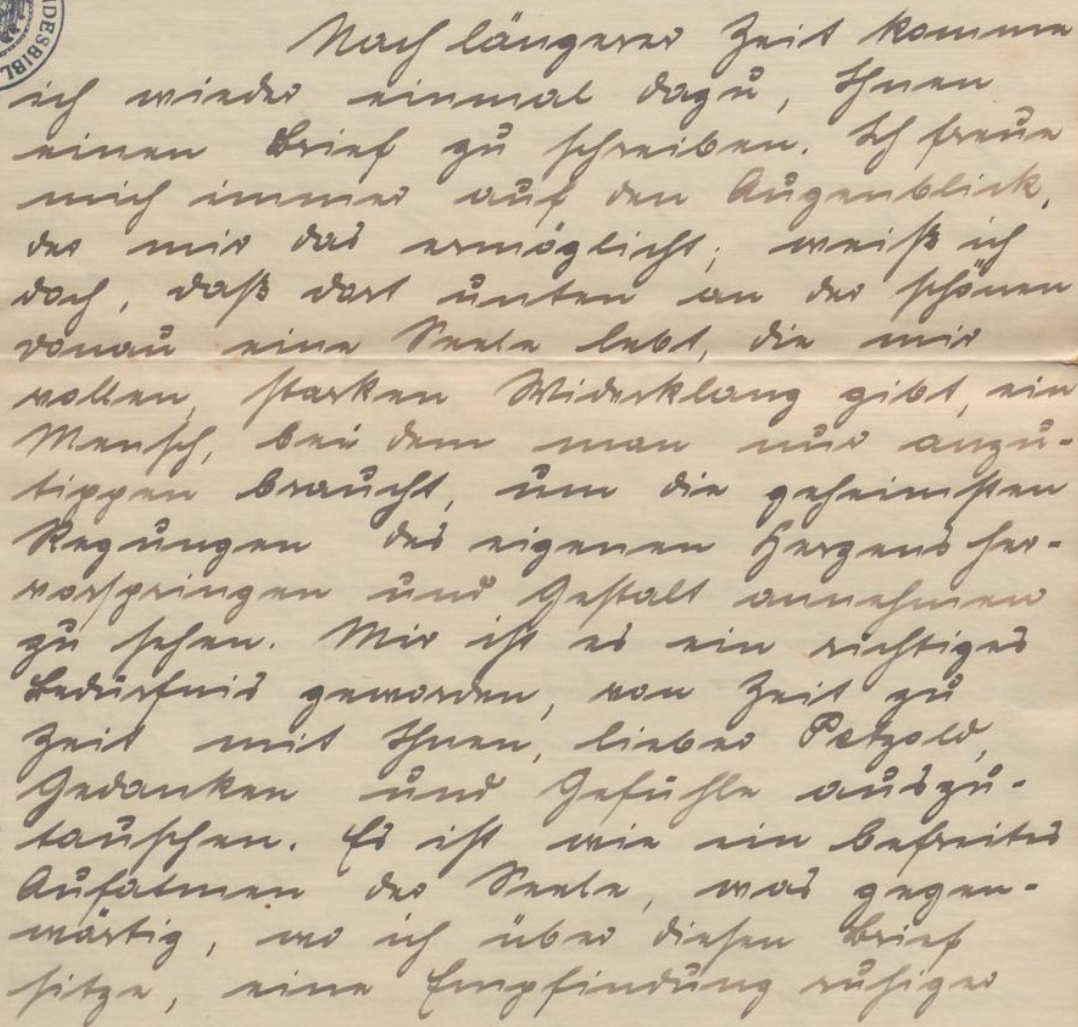 DESBIBL
Nach längerer Zeit komme
ich wieder einmal dazu, Ihnen
einen Brief zu schreiben. Ich freue
mich immer auf den Augenblick,
der mir das ermöglicht; weiß ich
doch, daß dort unten an der schönen
Donau eine Seele lebt, die mir
vollen, starken Widerklang gibt, ein
Mensch, bei dem man nur anzu-
tippen braucht, um die geheimsten
Regungen des eigenen Herzens her-
vorspringen und Gestalt annehmen
zu sehen. Mir ist es ein richtiges
Bedürfnis geworden, von Zeit zu
Zeit mit Ihnen, lieber Petzold,
Gedanken und Gefühle auszu-
tauschen. Es ist wie ein befreites
Aufatmen der Seele, was gegen-
wärtig, wo ich über diesen Brief
sitze, eine Empfindung ruhiger